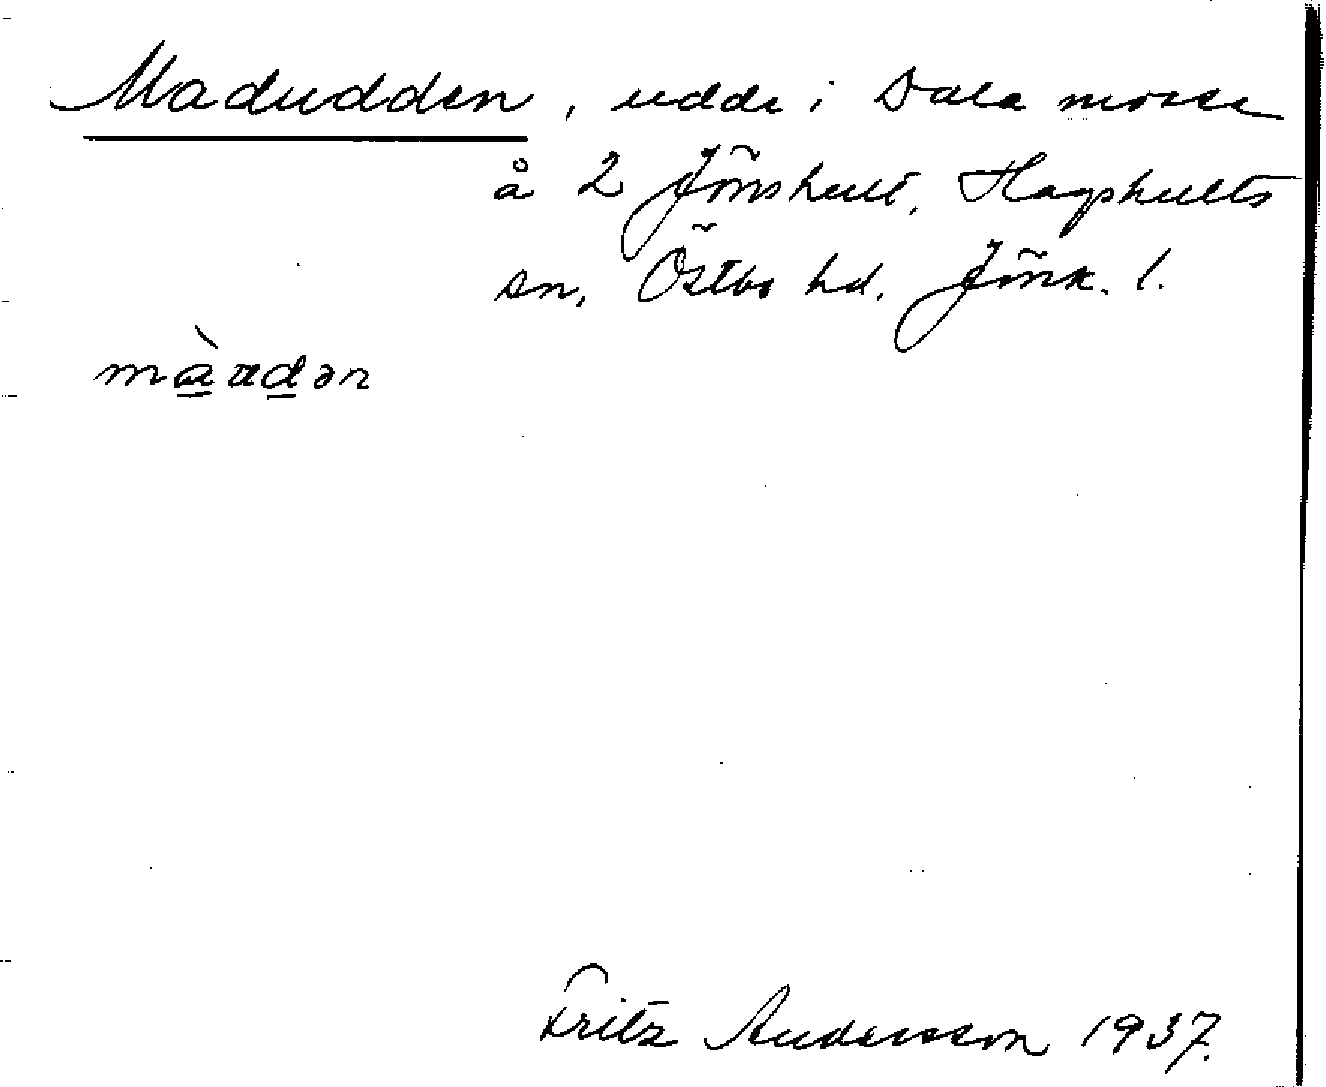 Madudden, udde i Dala mosse
å 2 Jönshult, Hagshults
sn, Östbo hd. Jönk. l.
màudən
Fritz Andersson 1937.